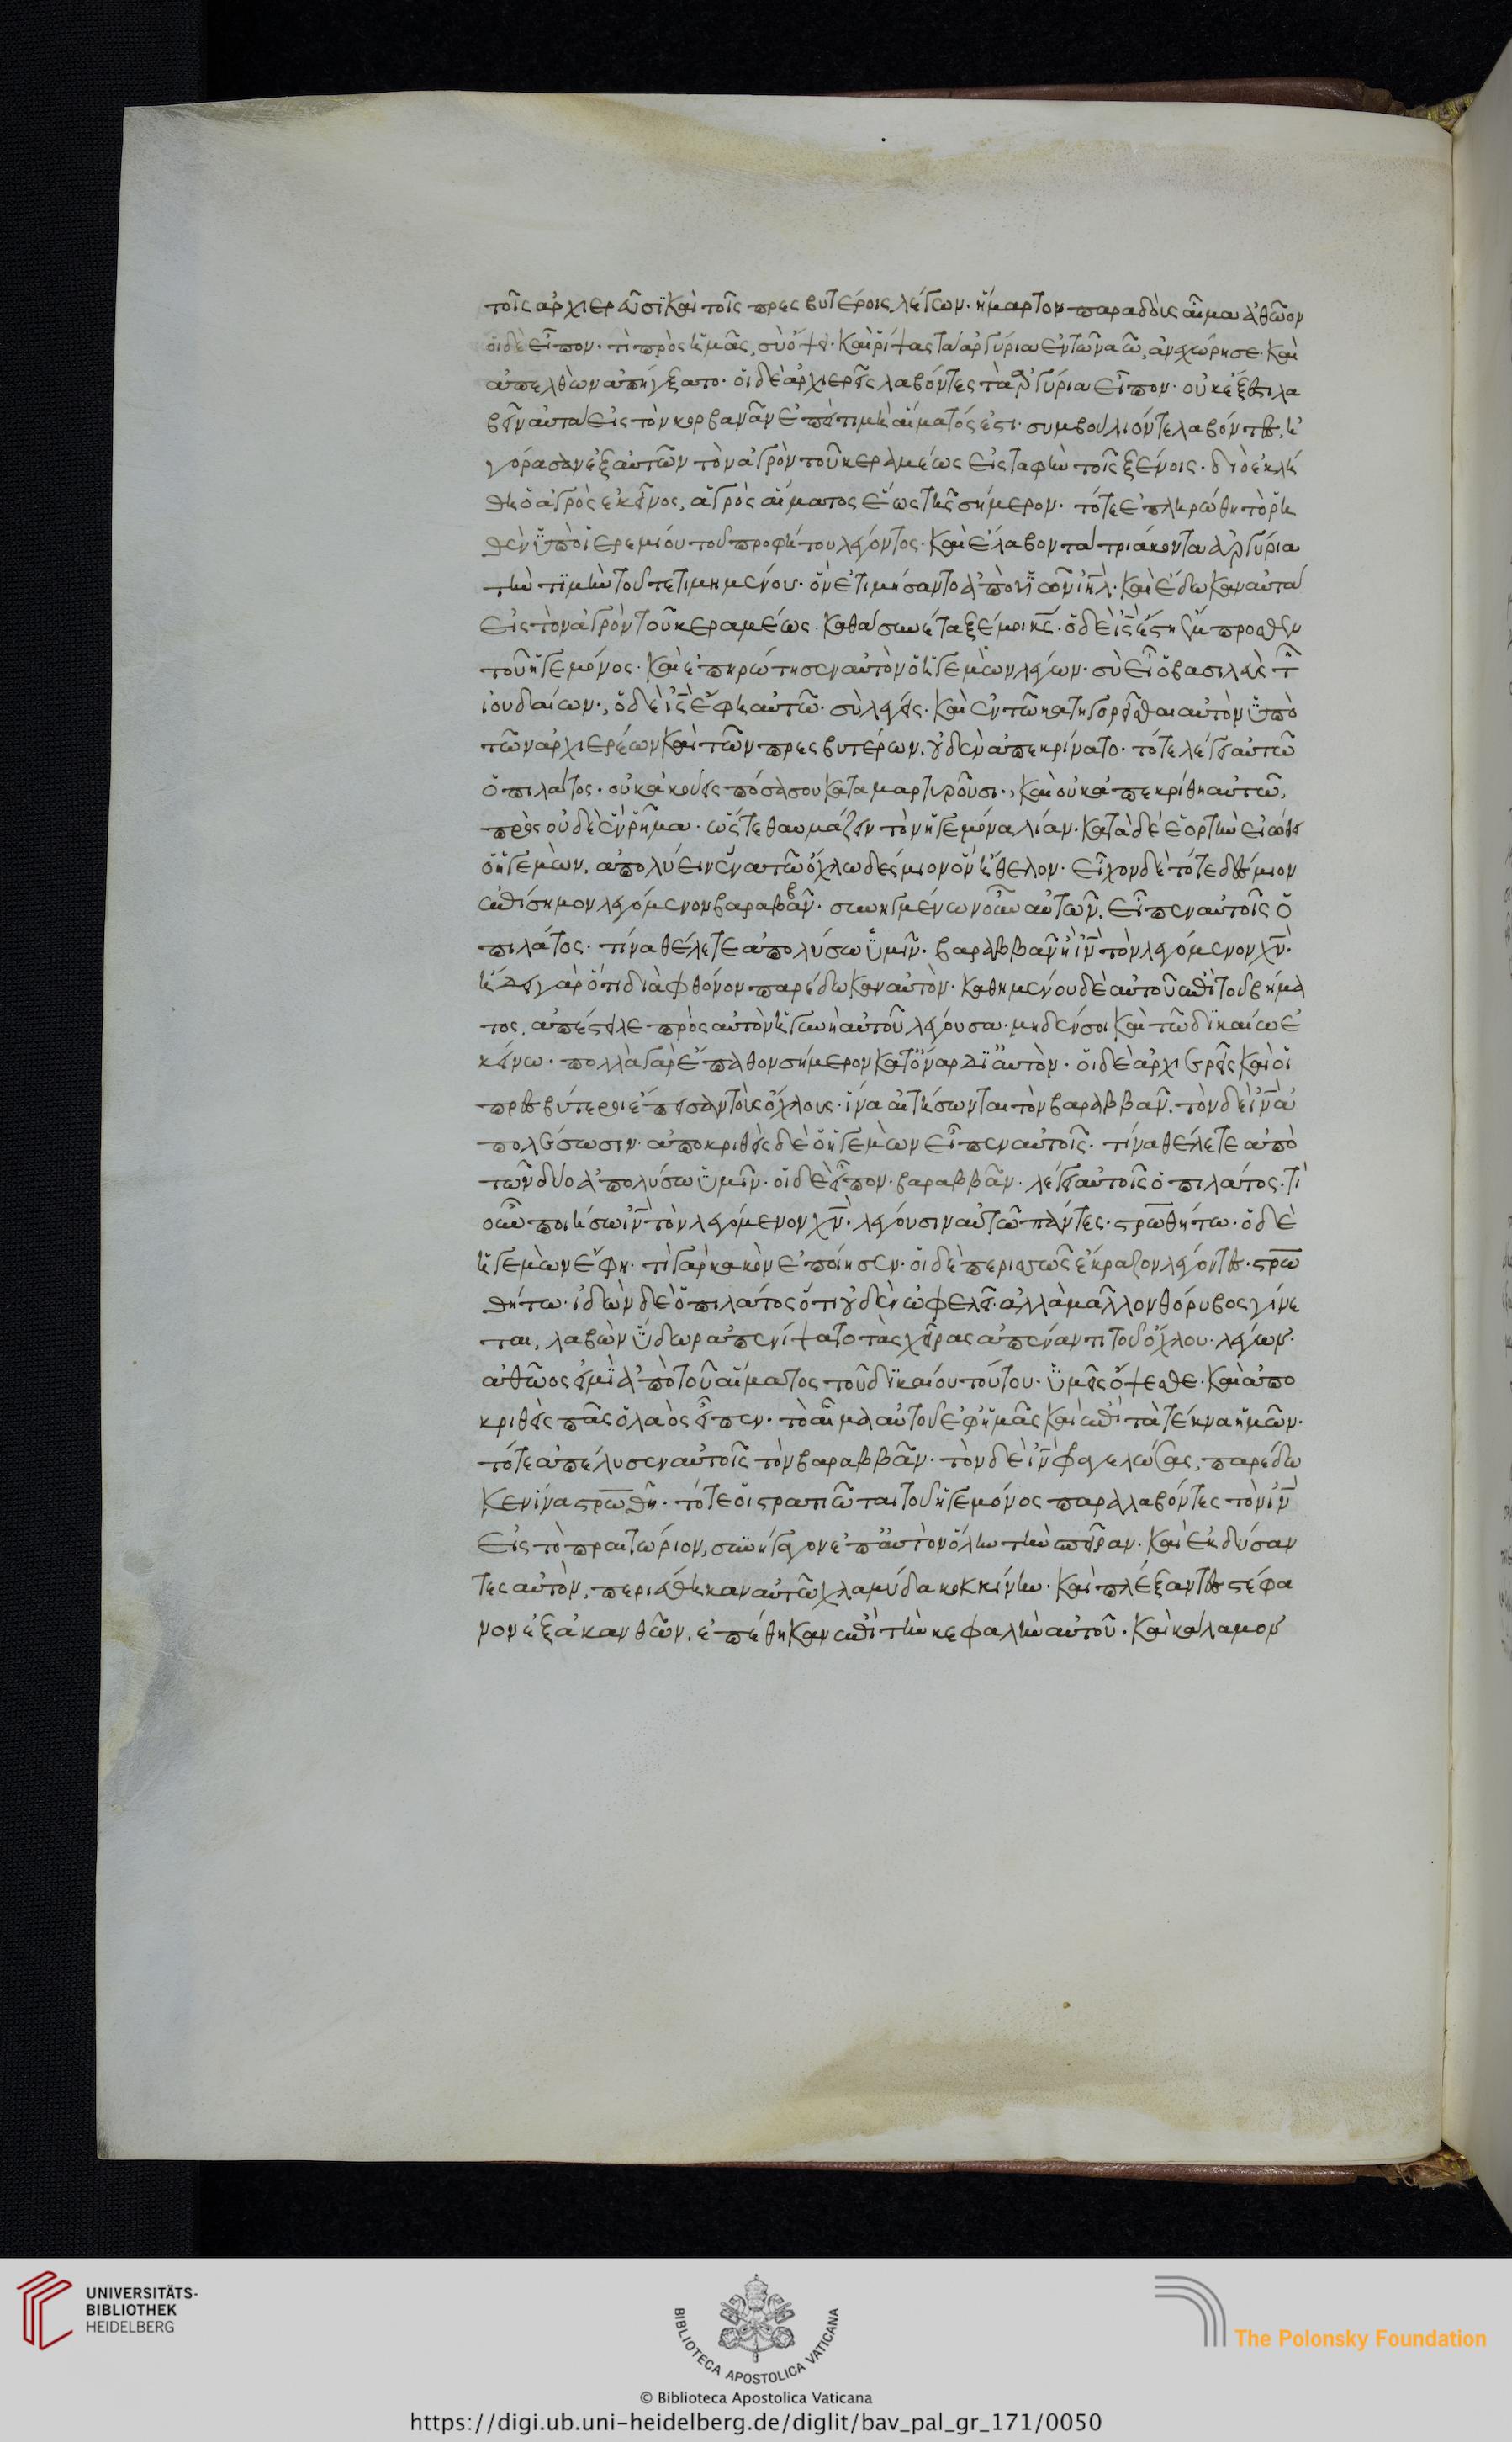 τοῖς ἀρχιερεῦσϊ καὶ τοῖς πρεσβυτέροις, λέγων· ἥμαρτον παραδοὺς αἷμα ἀθῶον
οἱ δὲ εἶπον· τί πρὸς ἡμᾶς, σὺ ὄψει· καὶ ῥίψας τὰ ἀργύρια ἐν τῶ ναῶ, ἀνχώρησε· καὶ
ἀπελθὼν ἀπήγξατο· οἱ δὲ ἀρχιερεῖς λαβόντες τὰ ἀργύρια εἶπον· οὐκ ἔξεστι λα
βεῖν αὐτὰ εἰς τὸν κορβανᾶν ἐπεὶ τιμὴ αἵματός ἐστι· συμβούλιόν τε λαβόντες, ἠ
γόρασαν ἐξ αὐτῶν τὸν ἀγρὸν τοῦ κεραμέως εἰς ταφὴν τοῖς ξένοις· διὸ ἐκλή
θη ὁ ἀγρὸς ἐκεῖνος, ἀγρὸς αἵματος ἕως τῆς σήμερον· τότε ἐπληρώθη τὸ ῥη
θὲν ὑπὸ ἱερεμίου τοῦ προφήτου λέγοντος· καὶ ἔλαβον τὰ τριάκοντα ἀργύρια
τὴν τϊμὴν τοῦ τετιμημένου· ὃν ἐτιμήσαντο ἀπὸ υἱῶν ιηλ· καὶ ἔδωκαν αὐτὰ
εἰς τὸν ἀγρὸν τοῦ κεραμέως· καθὰ συνέταξέ μοι κς· ὁ δὲ ις ἔστη ἔμπροσθεν
τοῦ ἡγεμόνος· καὶ ἐπηρώτησεν αὐτὸν ὁ ἡγεμὼν λέγων· σὺ εἶ ὁ βασιλεὺς τῶν
ἰουδαίων·, ὁ δὲ ις ἔφη αὐτῶ· σὺ λέγεις· καὶ ἐν τῶ κατηγορεῖσθαι αὐτὸν ὑπὸ
τῶν ἀρχιερέων καὶ τῶν πρεσβυτέρων, οὐδὲν ἀπεκρίνατο· τότε λέγει αὐτῶ
ὁ πιλάτος· οὐκ ἀκούεις πόσα σου καταμαρτυροῦσι·, καὶ οὐκ ἀπεκρίθη αὐτῶ,
πρὸς οὐδὲ ἓν ῥῆμα· ὥστε θαυμάζειν τὸν ἡγεμόνα λίαν· κατὰ δὲ ἑορτὴν εἰώθει
ὁ ἡγεμὼν, ἀπολύειν ἕνα τῶ ὄχλω δέσμιον ὃν ἤθελον· εἶχον δὲ τότε δέσμιον
ἐπίσημον λεγόμενον βαραββᾶν· συνηγμένων οὖν αὐτῶν, εἶπεν αὐτοῖς ὁ
πιλάτος· τίνα θέλετε ἀπολύσω ὑμῖν· βαραββᾶν ἢ ιν τὸν λεγόμενον χν·
ἤδει γὰρ ὅτι διὰ φθόνον παρέδωκαν αὐτὸν· καθημένου δὲ αὐτοῦ ἐπὶ τοῦ βήμα
τος, ἀπέστειλε πρὸς αὐτὸν ἡ γυνὴ αὐτοῦ λέγουσα· μηδέν σοι καὶ τῶ δϊκαίω ἐ
κείνω· πολλὰ γὰρ ἔπαθον σήμερον κατόναρ δϊ αὐτὸν· οἱ δὲ ἀρχιερεῖς καὶ οἱ
πρεσβύτεροι ἔπεισαν τοὺς ὄχλους· ἵνα αἰτήσωνται τὸν βαραββᾶν, τὸν δὲ ιν ἀ
πολέσωσιν· ἀποκριθεὶς δὲ ὁ ἡγεμὼν εἶπεν αὐτοῖς· τίνα θέλετε ἀπὸ
τῶν δύο ἀπολύσω ὑμῖν· οἱ δὲ εἶπον· βαραββᾶν· λέγει αὐτοῖς ὁ πιλάτος· τί
οὖν ποιήσω ιν τὸν λεγόμενον χν· λέγουσιν αὐτῶ πάντες· στρωθήτω· ὁ δὲ
ἡγεμὼν ἔφη· τί γὰρ κακὸν ἐποίησεν· οἱ δὲ περισσῶς ἔκραζον λέγοντες· στρω
θήτω· ἰδὼν δὲ ὁ πιλάτος ὅτι οὐδὲν ὠφελεῖ· ἀλλὰ μᾶλλον θόρυβος γίνε
ται, λαβὼν ὕδωρ ἀπενίψατο τὰς χεῖρας ἀπέναντι τοῦ ὄχλου· λέγων·
ἀθῶος εἰμὶ ἀπὸ τοῦ αἵματος τοῦ δϊκαίου τούτου· ὑμεῖς ὄψεσθε· καὶ ἀπο
κριθεὶς πᾶς ὁ λαὸς εἶπεν· τὸ αἷμα αὐτοῦ ἐφ ἡμᾶς καὶ ἐπὶ τὰ τέκνα ἡμῶν·
τότε ἀπέλυσεν αὐτοῖς τὸν βαραββᾶν· τὸν δὲ ιν φραγελώσας, παρέδω
κεν ἵνα στρωθῆ· τότε οἱ στρατιῶται τοῦ ἡγεμόνος παραλαβόντες τὸν ιν
εἰς τὸ πραιτώριον, συνήγαγον ἐπ αὐτὸν ὅλην τὴν σπεῖραν· καὶ ἐκδύσαν
τες αὐτὸν, περιέθηκαν αὐτῶ χλαμύδα κοκκίνην· καὶ πλέξαντες στέφα
νον ἐξ ἀκανθῶν, ἐπέθηκαν ἐπὶ τὴν κεφαλὴν αὐτοῦ· καὶ κάλαμον
UNIVERSITÄTS-
BIBLIOTHEK
HEIDELBERG
BIBLIOTECA APOSTOLICA VATICANA
The Polonsky Foundation
© Biblioteca Apostolica Vaticana
https://digi.ub.uni-heidelberg.de/diglit/bav_pal_gr_171/0050